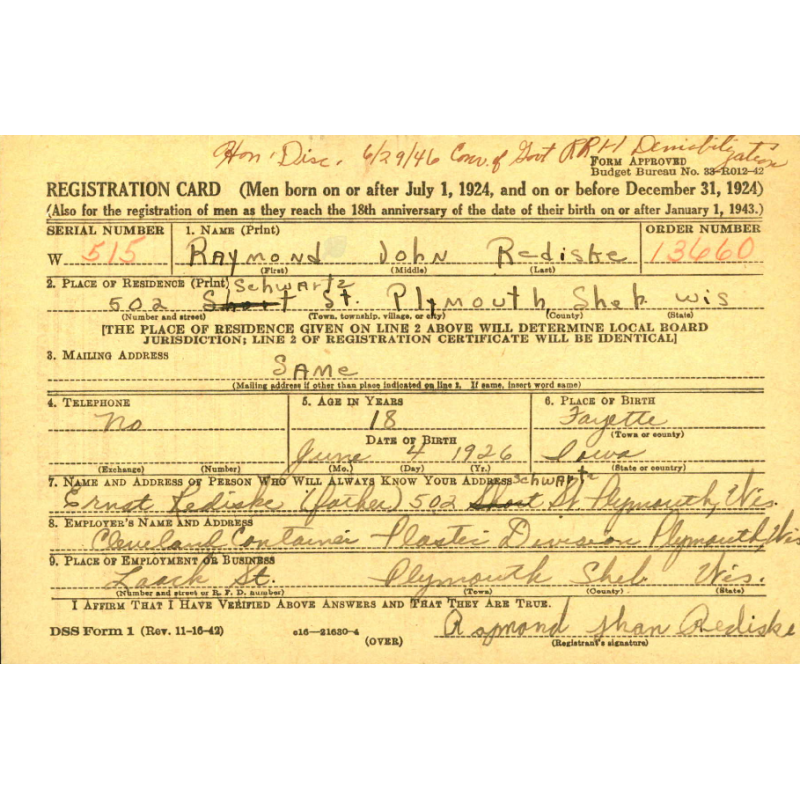 Hon. Disc. 6/29/46 Conv. of Govt RRH Demobilization
FORM APPROVED
Budget Bureau No. 33-R012-42
REGISTRATION CARD (Men born on or after July 1, 1924, and on or before December 31, 1924)
(Also for the registration of men as they reach the 18th anniversary of the date of their birth on or after January 1, 1943.)
SERIAL NUMBER 1. NAME (Print) ORDER NUMBER
W 515 Raymond John Rediske 13660
(First) (Middle) (Last)
2. PLACE OF RESIDENCE (Print) Schwartz
502 Short St. Plymouth Sheb. Wis
(Number and street) (Town, township, village, or city) (County) (State)
[THE PLACE OF RESIDENCE GIVEN ON LINE 2 ABOVE WILL DETERMINE LOCAL BOARD
JURISDICTION; LINE 2 OF REGISTRATION CERTIFICATE WILL BE IDENTICAL]
3. MAILING ADDRESS
SAMe
(Mailing address if other than place indicated on line 2. If same, insert word same)
4. TELEPHONE 5. AGE IN YEARS 6. PLACE OF BIRTH
No 18 Fayette
DATE OF BIRTH (Town or county)
June 4 1926 Iowa
(Exchange) (Number) (Mo.) (Day) (Yr.) (State or country)
7. NAME AND ADDRESS OF PERSON WHO WILL ALWAYS KNOW YOUR ADDRESS Schwartz
Ernst Rediske (father) 502 Short St Plymouth, Wis.
8. EMPLOYER'S NAME AND ADDRESS
Cleveland Container Plastic Division Plymouth, Wis
9. PLACE OF EMPLOYMENT OR BUSINESS
Laack St. Plymouth Sheb. Wis.
(Number and street or R. F. D. number) (Town) (County) (State)
I AFFIRM THAT I HAVE VERIFIED ABOVE ANSWERS AND THAT THEY ARE TRUE.
DSS Form 1 (Rev. 11-16-42) c16—21630-4 Raymond Rediske
(OVER) (Registrant's signature)